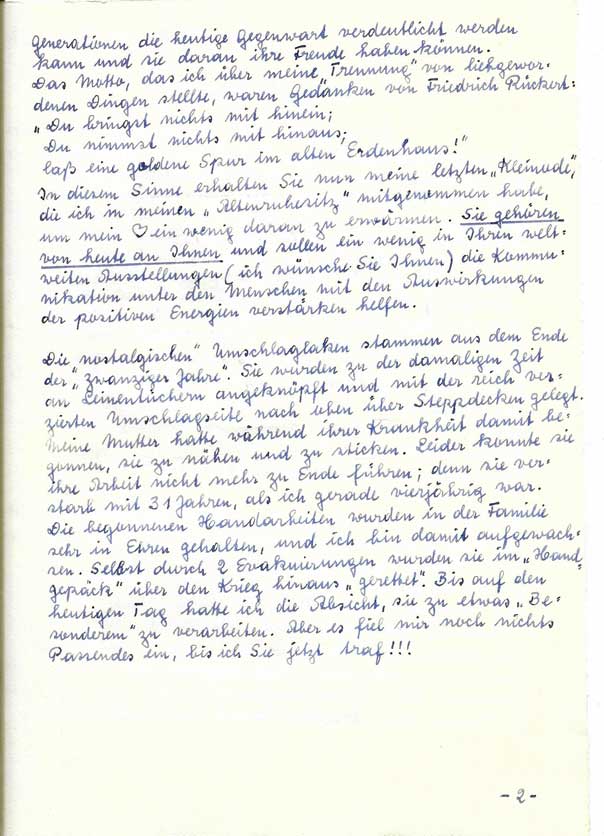 generationen die heutige Gegenwart verdeutlicht werden
kann und sie daran ihre Freude haben können.
Das Motto, das ich über meine „Trennung" von liebgewor-
denen Dingen stellte, waren Gedanken von Friedrich Rückert:
„Du bringst nichts mit hinein;
Du nimmst nichts mit hinaus;
laß eine goldene Spur im alten Erdenhaus!"
In diesem Sinne erhalten Sie nun meine letzten „Kleinode",
die ich in meinen „Altenruhesitz" mitgenommen habe,
um mein ♡ ein wenig daran zu erwärmen. Sie gehören
von heute an Ihnen und sollen ein wenig in Ihren welt-
weiten Ausstellungen (ich wünsche Sie Ihnen) die Kommu-
nikation unter den Menschen mit den Auswirkungen
der positiven Energien verstärken helfen.
Die „nostalgischen" Umschlaglaken stammen aus dem Ende
der „zwanziger Jahre". Sie wurden zu der damaligen Zeit
an Leinentüchern angeknöpft und mit der reich ver-
zierten Umschlagseite nach oben über Steppdecken gelegt.
Meine Mutter hatte während ihrer Krankheit damit be-
gonnen, sie zu nähen und zu sticken. Leider konnte sie
ihre Arbeit nicht mehr zu Ende führen; denn sie ver-
starb mit 31 Jahren, als ich gerade vierjährig war.
Die begonnenen Handarbeiten wurden in der Familie
sehr in Ehren gehalten, und ich bin damit aufgewach-
sen. Selbst durch 2 Evakuierungen wurden sie im „Hand-
gepäck" über den Krieg hinaus „gerettet". Bis auf den
heutigen Tag hatte ich die Absicht, sie zu etwas „Be-
sonderem" zu verarbeiten. Aber es fiel mir noch nichts
Passendes ein, bis ich Sie jetzt traf!!!
- 2 -